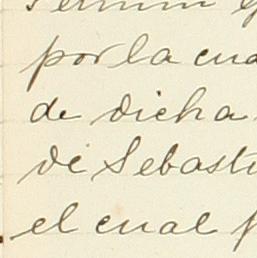 por la cua
de dicha
de Sebasti
el cual p